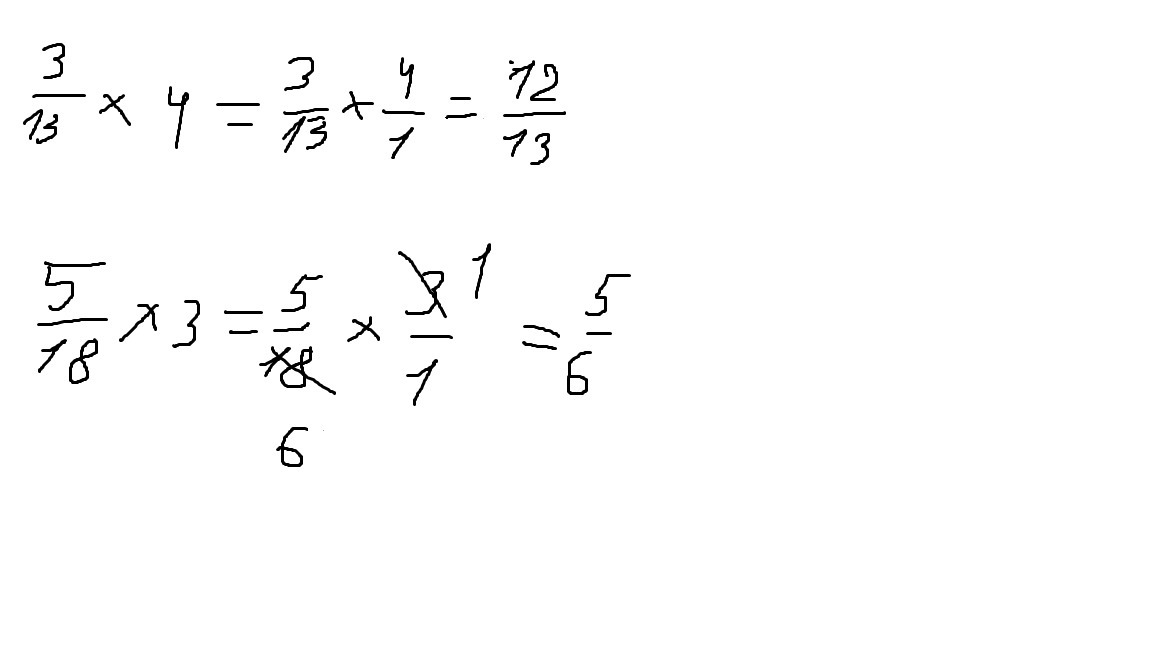 3/13 × 4 = 3/13 × 4/1 = 12/13
5/18 × 3 = 5/18 6 × 3/1 1 = 5/6